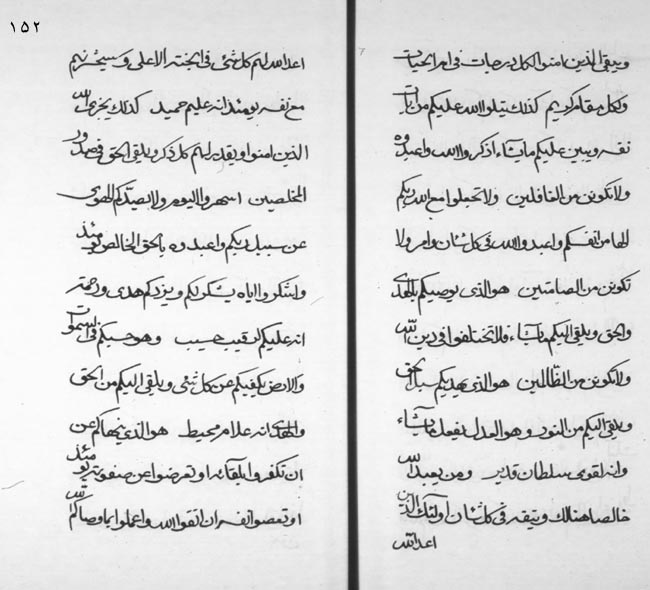 ويبقى الذين امنوا لكل درجات في امر الحيات
ولكل مقام كريم كذلك يتلوا الله عليكم من ايات
نفسه ويبين عليكم مايشاء اذكروا الله واعبدوه
ولا تكونن من الغافلين ولا تجعلوا مع الله ربكم
الها من انفسكم واعبدوا الله في كل شان وامر ولا
تكونن من الصامتين هو الذي يوصيكم بالهدى
والحق ويلقي اليكم مايشاء فلا تختلفوا في دين الله
ولا تكونن من الظالمين هو الذي يهديكم سبل الحق
ويلقي اليكم من النور وهو العدل يفعل مايشاء
وانه لقوي سلطان قدير ومن يعبد الله
خالصا هنالك ويتقه في كل شان اولئك الذين
اعد الله
١٥٢
اعد الله لهم كل شئ في الجنة الاعلى وسيجزيهم
مع نفسه يومئذ انه عليم حميد كذلك يجزي الله
الذين امنوا ويقدر لهم كل ذكر ويلقي الحق في صدور
المخلصين اسهروا اليوم ولا يصدنكم الهوى
عن سبيل ربكم واعبدوه بالحق الخالص يومئذ
واشكروا اياه يشكر لكم ويزدكم هدى ورحمة
انه عليكم لرقيب حسيب وهو حسبكم في السموات
والارض يكفيكم عن كل شئ ويلقي اليكم من الحق
والهدى انه علام محيط هو الذي ينهاكم عن
ان تكفروا بلقائه او تعرضوا عن صفوته يومئذ
او تعصوا نفسه ان اتقوا الله واعملوا بما وصاكم الله